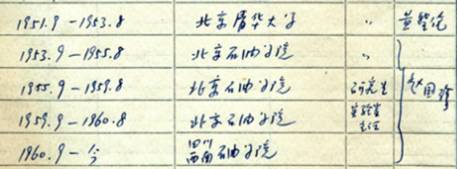 1951.9－1953.8 北京清华大学 〃
1953.9－1955.8 北京石油学院 〃
1955.9－1959.8 北京石油学院 研究生
1959.9－1960.8 北京石油学院 实验室主任
1960.9－今 四川西南石油学院